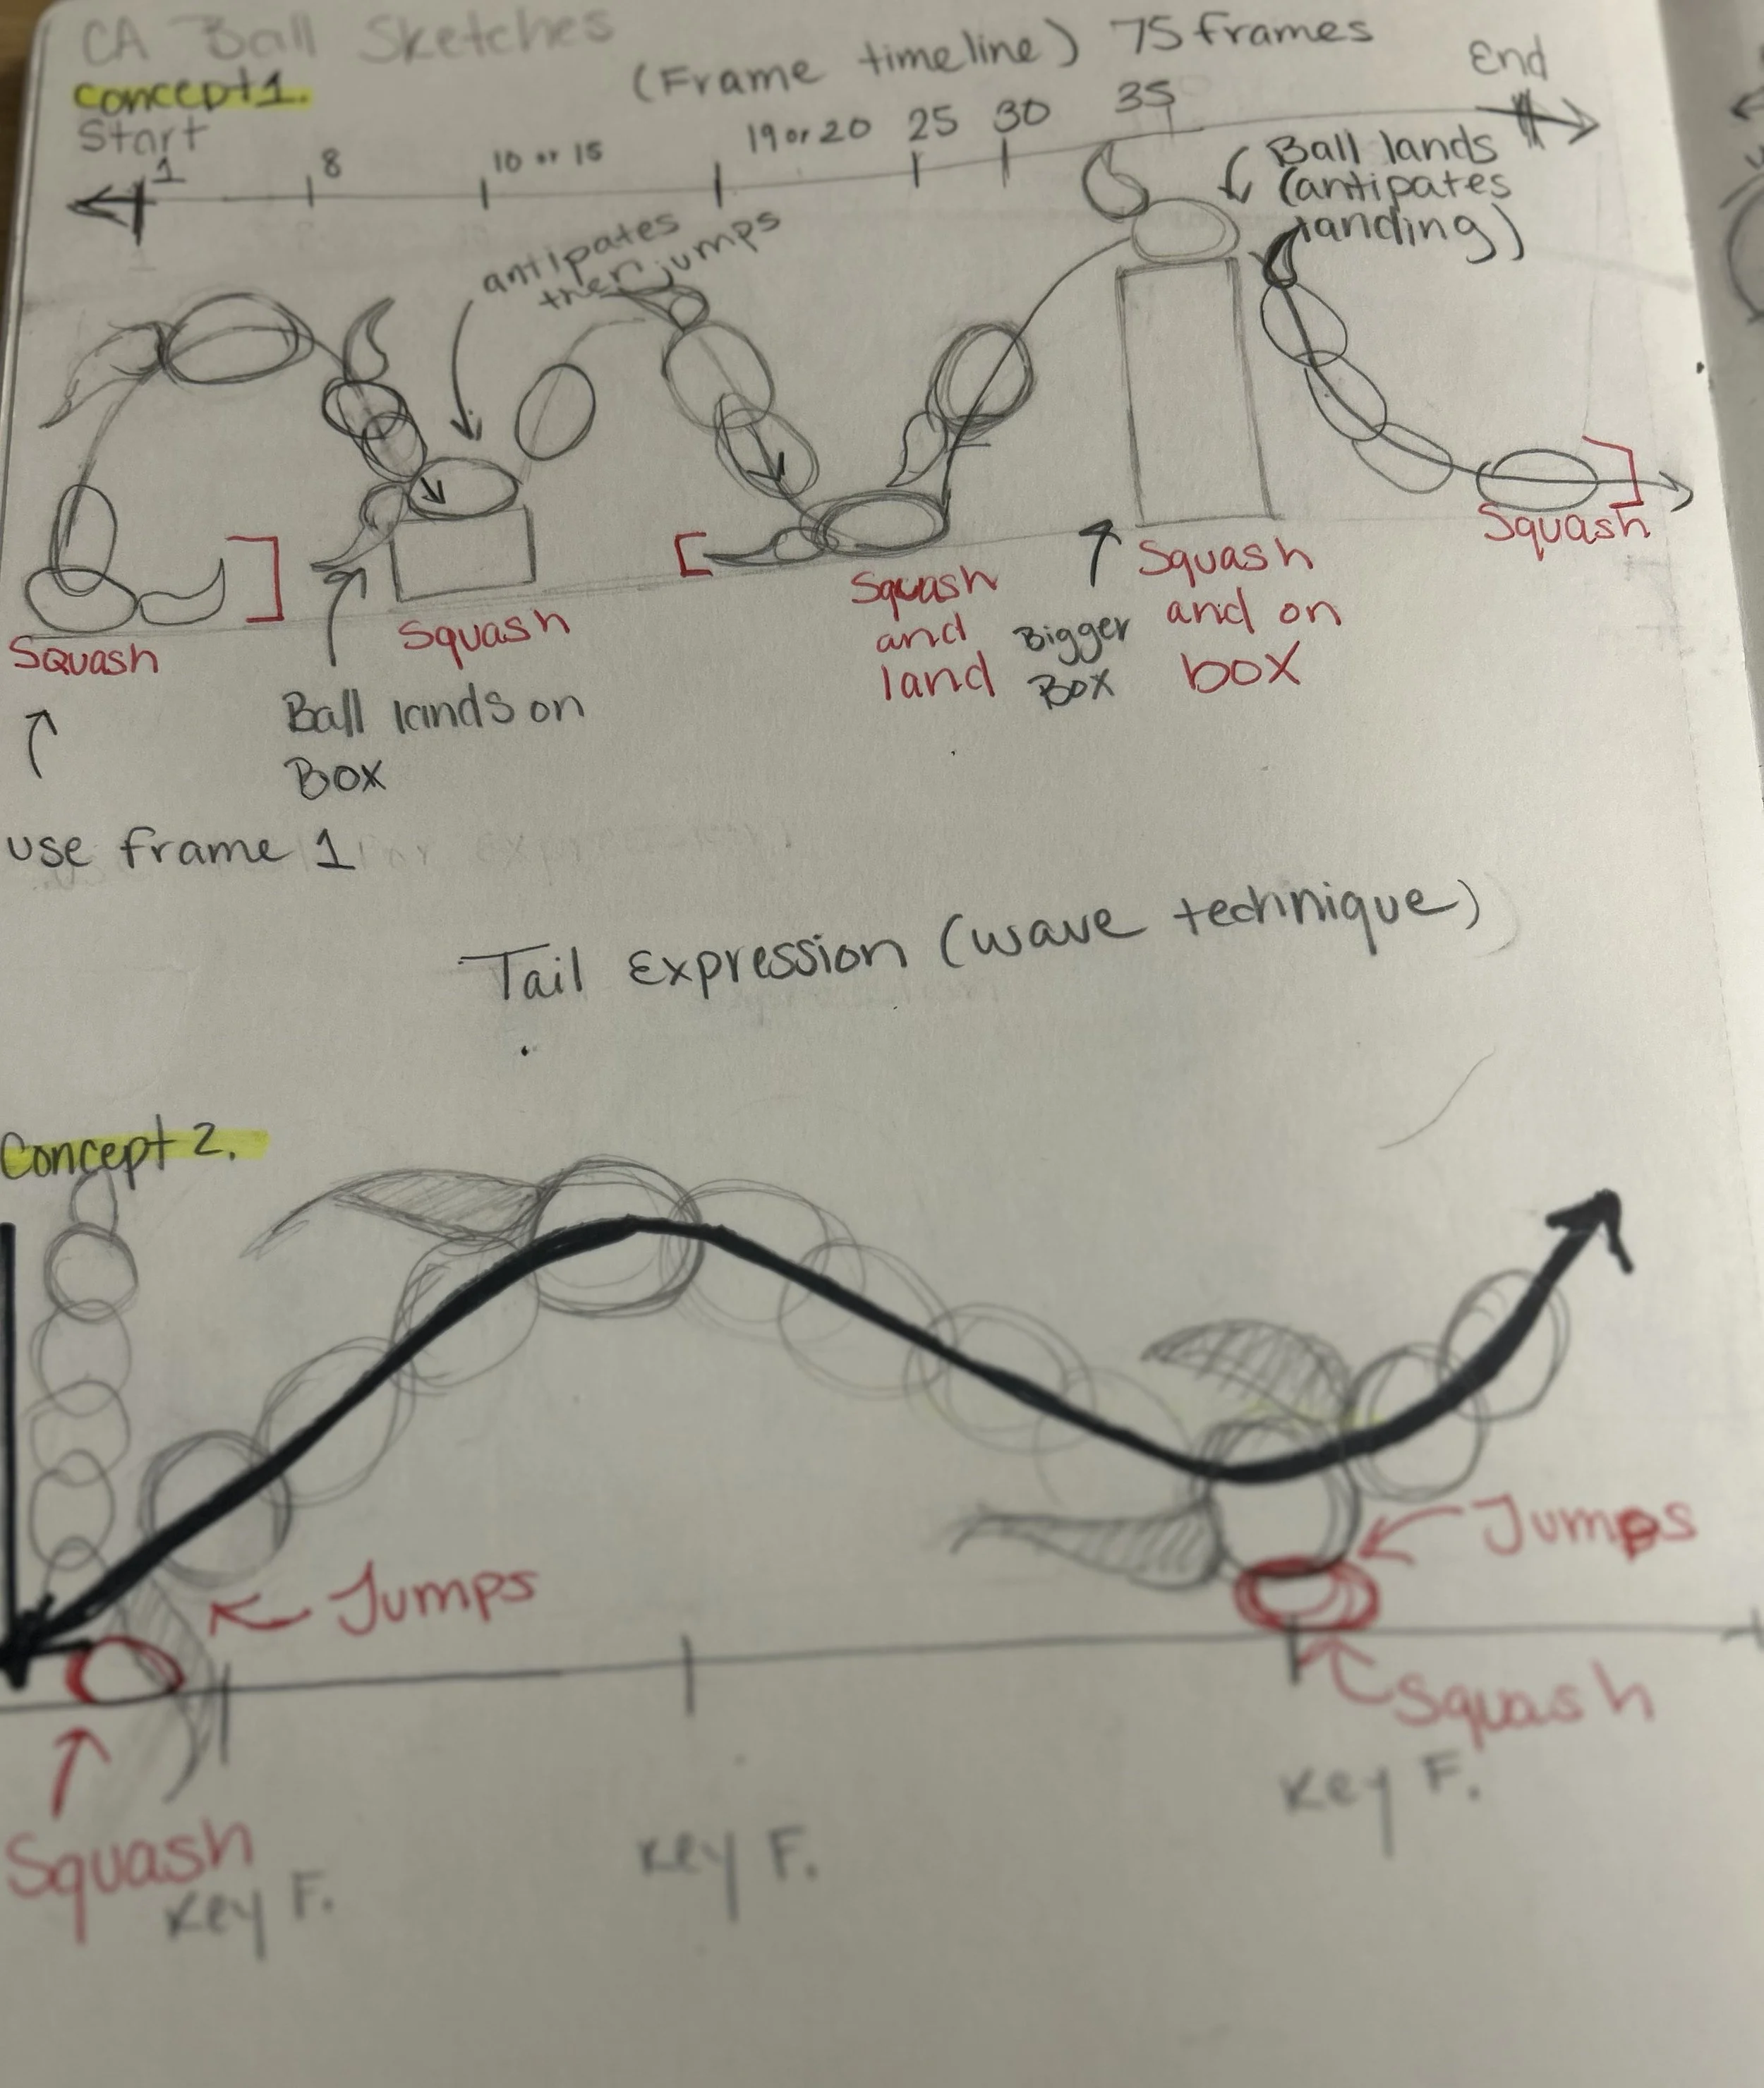 CA Ball Sketches
concept 1.
(Frame timeline) 75 frames
Start
End
1
8
10 or 15
19 or 20
25
30
35
antipates
then jumps
Ball lands
(antipates
landing)
Squash
Squash
Squash
and
land
Bigger
Box
Squash
and on
box
Squash
Ball lands on
Box
use frame 1
Tail Expression (wave technique)
Concept 2.
Jumps
Jumps
Squash
Squash
Key F.
Key F.
Key F.